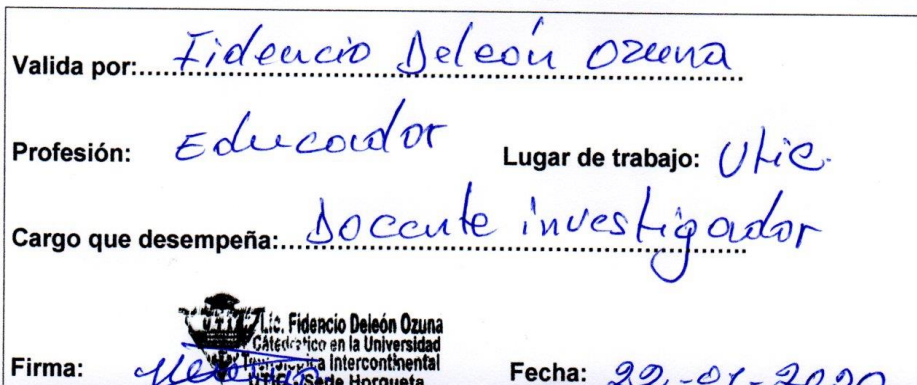 Valida por: Fidencio Deleón Ozuna
Profesión: Educador Lugar de trabajo: Utic.
Cargo que desempeña: Docente investigador
UTIC Lic. Fidencio Deleón Ozuna
Catedrático en la Universidad
Tecnológica Intercontinental
UTIC - Sede Horqueta
Firma: Fecha: 22-01-2020